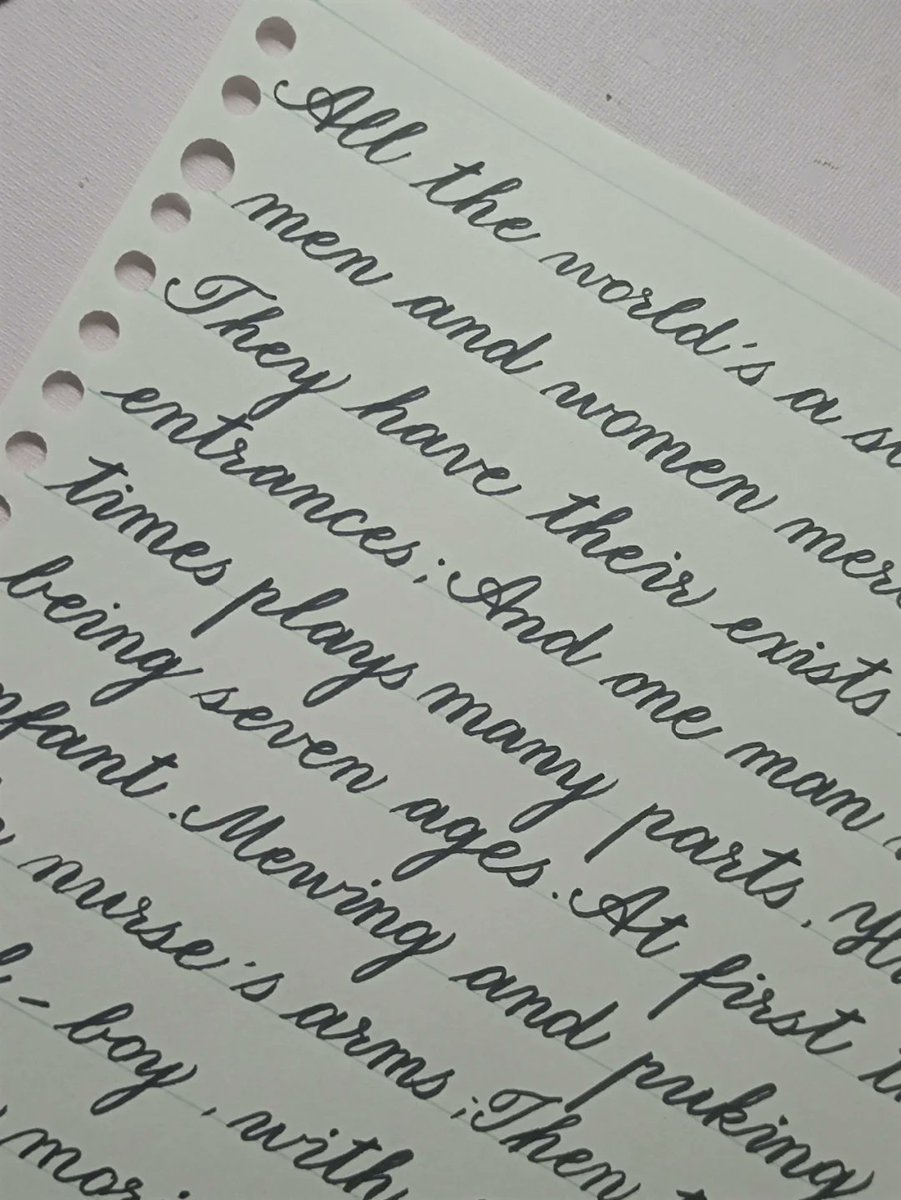 All the world's a
men and women mer
They have their exists
entrances; And one man
times plays many parts,
being seven ages. At first
nfant. Mewing and puking
nurse's arms; Then
- boy, with